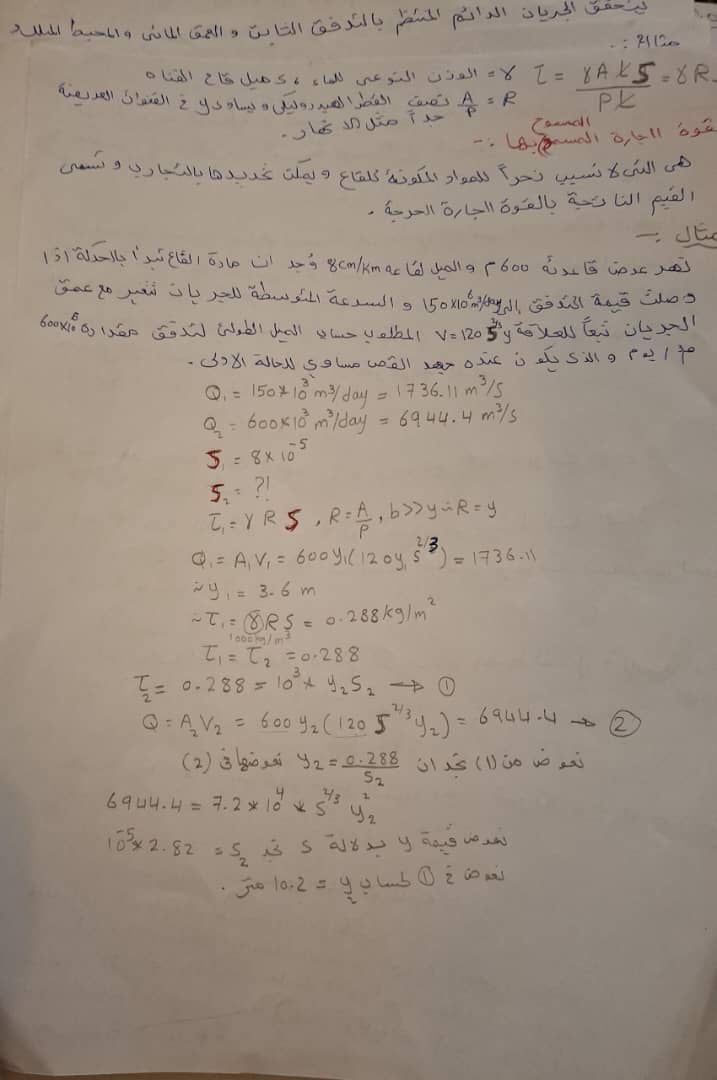 يتحقق الجريان الدائم المنتظم بالتدفق الثابت و العمق المائي و المحيط المبلل
مثال :-
τ = γALS / PL = γR γ = الوزن النوعي للماء ، S ميل قاع القناة
R = A/P نصف القطر الهيدروليكي ويساوي y في القنوات العريضة
جداً مثل الانهار .
المسموح
قوة الجارة المسموح بها :-
هي التي لا تسبب نحراً للمواد المكونة للقاع و يمكن تحديدها بالتجارب و تسمى
القيم الناتجة بالقوة الجارة الحرجة .
مثال :-
نهر عرض قاعدته 600م و الميل لقاعه 8cm/km وُجد ان مادة القاع تبدأ بالحركة اذا
وصلت قيمة التدفق الى 150x10⁶m³/day و السرعة المتوسطة للجريان تتغير مع عمق
الجريان تبعاً للعلاقة V=120 S^2/3 y المطلوب حساب الميل الطولي لتدفق مقداره 600x10⁶
م3/يوم و الذي يكون عنده جهد القص مساوي للحالة الاولى .
Q₁ = 150*10³ m³/day = 1736.11 m³/s
Q₂ = 600*10³ m³/day = 6944.4 m³/s
S₁ = 8×10⁻⁵
S₂ = ?!
τ₁ = γ R S , R = A/P , b>>y ∴ R = y
Q₁ = A₁V₁ = 600y₁(120y₁S^2/3) = 1736.11
∴ y₁ = 3.6 m
∴ τ₁ = γRS = 0.288 kg/m²
1000kg/m³
τ₁ = τ₂ = 0.288
τ₂ = 0.288 = 10³* y₂S₂ → ①
Q = A₂V₂ = 600 y₂(120 S^2/3 y₂) = 6944.4 → ②
نعوض من (1) نجد ان y₂ = 0.288/S₂ نعوضها في (2)
6944.4 = 7.2*10⁴ * S^2/3 y₂²
نعوض قيمة y بدلالة S نجد S₂ = 2.82*10⁻⁵
نعوض في ① لحساب y₂ = 10.2 متر .